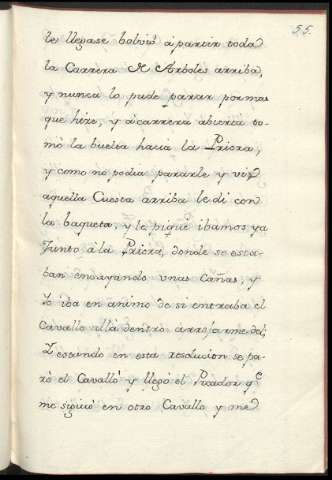 55.
le llegase bolvió à partir toda
la Carrera de Arboles arriba,
y nunca lo pude parar por mas
que hize, y à carrera abierta to-
mò la buelta hacia la Priora,
y como no podia pararle y vi
aquella Cuesta arriba le di con
la baqueta, y le piquè ibamos ya
Junto à la Priora, donde se esta-
ban ensayando unas Cañas, y
Yo iba en animo de si entraba el
Cavallo allà dentro arrojarme del,
Y estando en esta resolucion se pa-
rò el Cavallo y llegò el Picador q.e
me siguiò en otro Cavallo y me